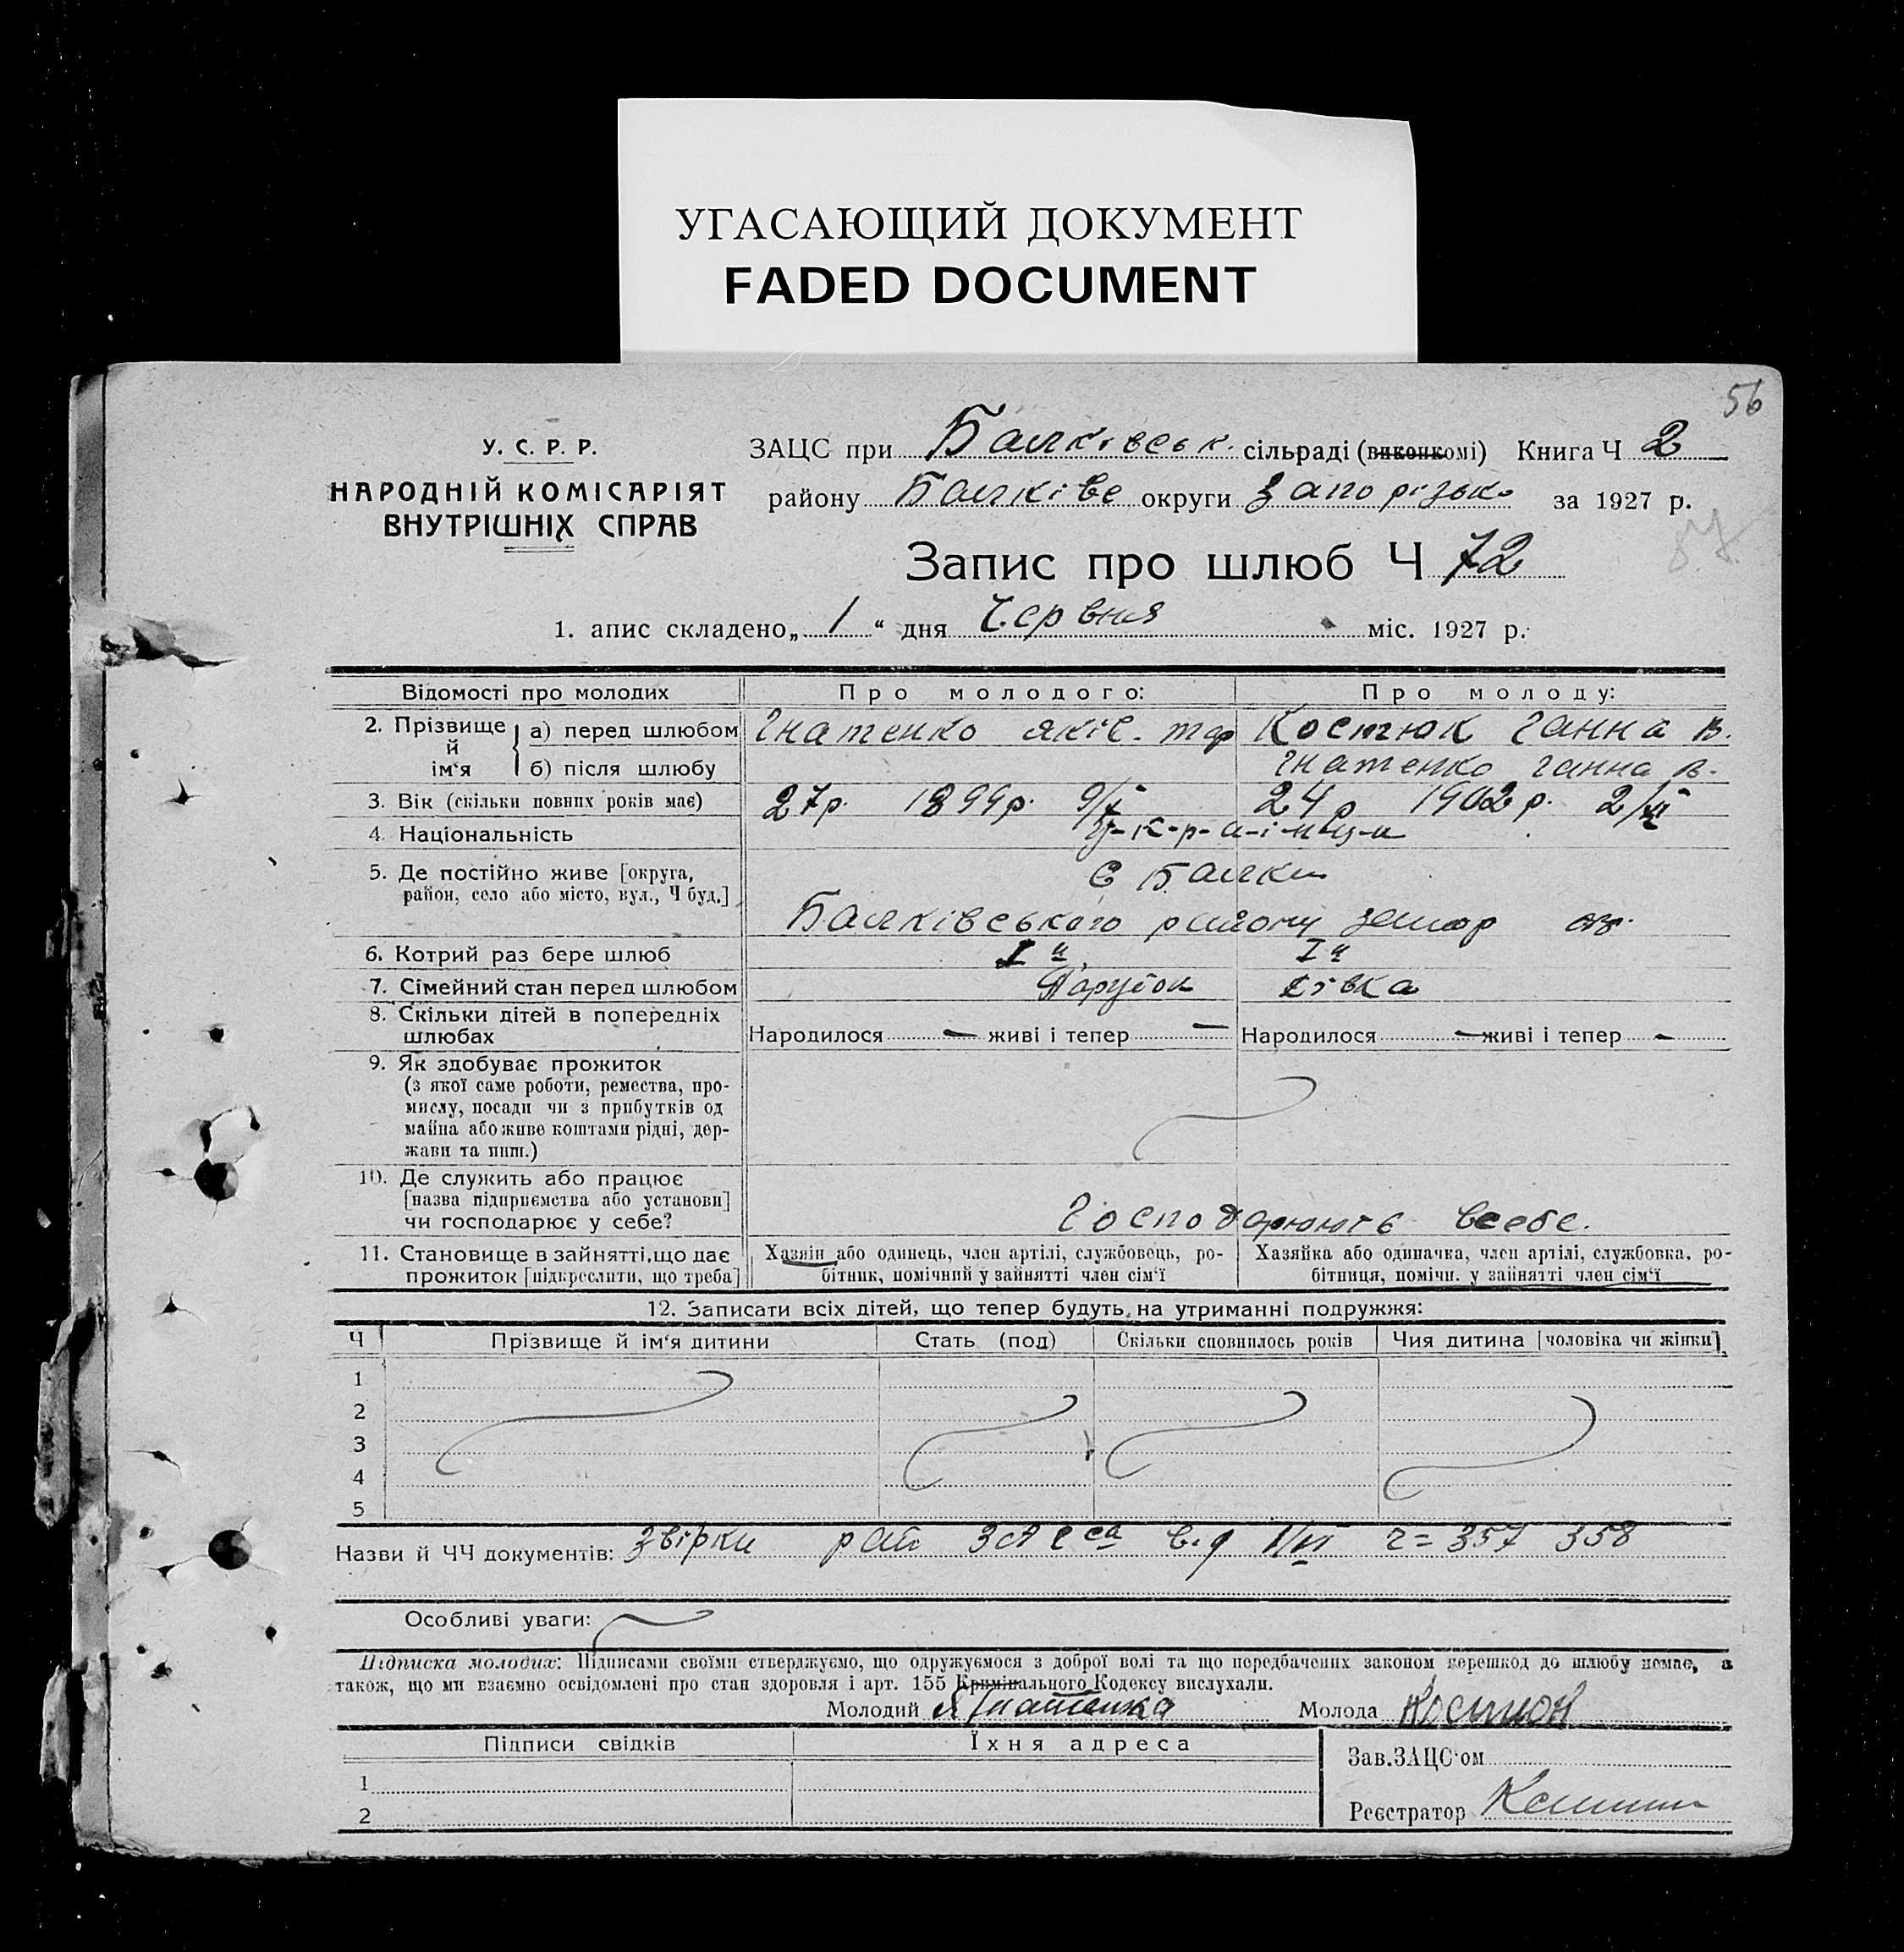 УГАСАЮЩИЙ ДОКУМЕНТ
FADED DOCUMENT
56
У. С. Р. Р.
НАРОДНІЙ КОМІСАРІЯТ
ВНУТРІШНІХ СПРАВ
ЗАЦС при Балківськ. сільраді (виконкомі) Книга Ч 2
району Балківс округи Запорізько за 1927 р.
57
Запис про шлюб Ч 72
1. апис складено „ 1 " дня Червня міс. 1927 р.
Відомості про молодих Про молодого: Про молоду:
2. Прізвище й ім'я
а) перед шлюбом Гнатенко Яків. Тар Костюк Ганна В.
б) після шлюбу Гнатенко Ганна В.
3. Вік (скільки повних років має) 27р. 1899р. 9/X 24р 1902р. 2/VI
4. Національність У-к-р-а-ї-н-ц-и
5. Де постійно живе [округа, район, село або місто, вул., Ч буд.] С Балки
Балківського району Запор ок.
6. Котрий раз бере шлюб I й I й
7. Сімейний стан перед шлюбом Парубок Дівка
8. Скільки дітей в попередніх шлюбах Народилося — живі і тепер — Народилося — живі і тепер —
9. Як здобуває прожиток
(з якої саме роботи, ремества, про-
мислу, посади чи з прибутків од
майна або живе коштами рідні, дер-
жави та инш.)
10. Де служить або працює
[назва підприємства або установи]
чи господарює у себе? Господарюють всебе.
11. Становище в зайнятті, що дає Хазяїн або одинець, член артілі, службовець, ро- Хазяйка або одиначка, член артілі, службовка, ро-
прожиток [підкреслити, що треба] бітник, помічний у зайнятті член сім'ї бітниця, помічн. у зайнятті член сім'ї
12. Записати всіх дітей, що тепер будуть на утриманні подружжя:
Ч Прізвище й ім'я дитини Стать (под) Скільки сповнилось років Чия дитина [чоловіка чи жінки]
1
2
3
4
5
Назви й ЧЧ документів: Звірки рай ЗАГСа від 1/VI Ч= 357 358
Особливі уваги:
Підписка молодих: Підписами своїми стверджуємо, що одружуємося з доброї волі та що передбачених законом перешкод до шлюбу немає, а
також, що ми взаємно освідомлені про стан здоровля і арт. 155 Кримінального Кодексу вислухали.
Молодий Я Гнатенка Молода Костюк
Підписи свідків Їхня адреса Зав.ЗАЦС'ом
1
2
Реєстратор